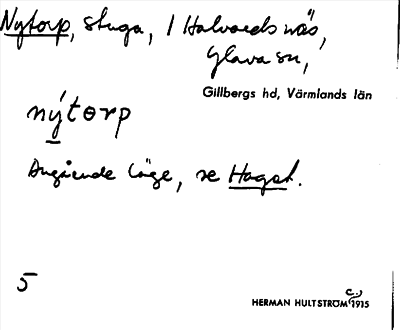 Nytorp, stuga, i Halvardsnäs,
Glava sn,
Gillbergs hd, Värmlands län
nýtorp
Angående läge, se Hagst.
5
HERMAN HULTSTRÖM 1915